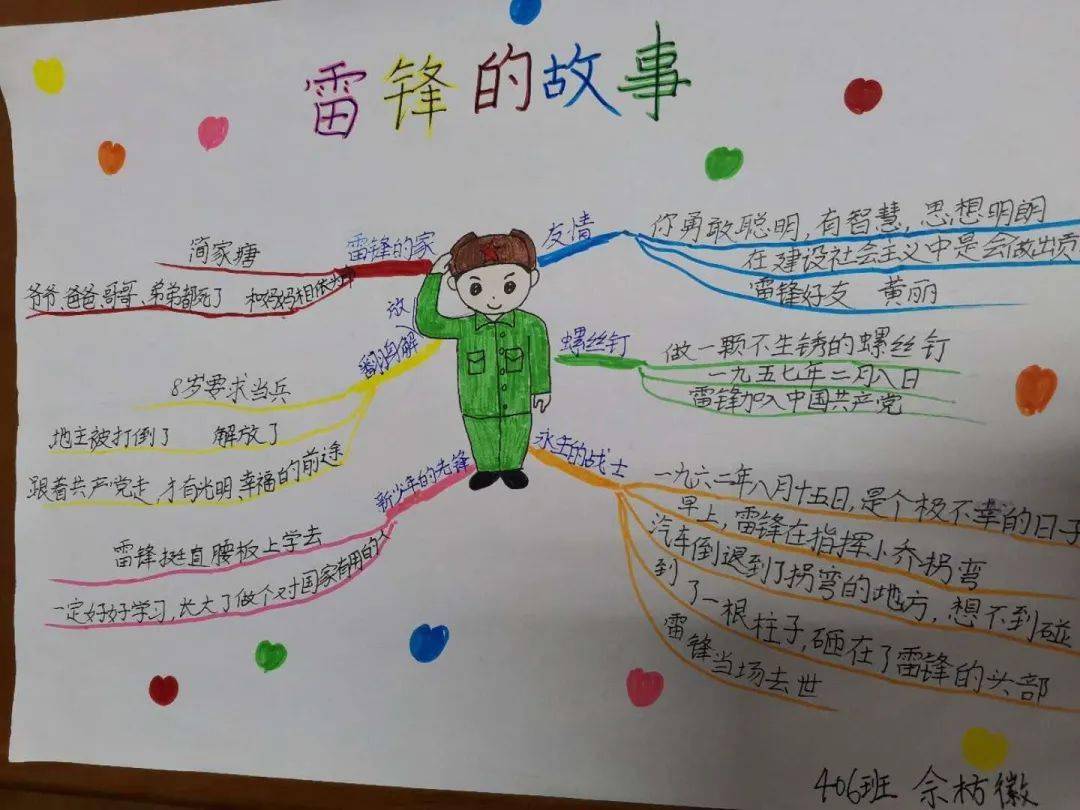 雷锋的故事
雷锋的家
简家塘
爷爷、爸爸、哥哥、弟弟都死了 和妈妈相依为命
翻身解放
8岁要求当兵
地主被打倒了 解放了
跟着共产党走,才有光明、幸福的前途
新少年的先锋
雷锋挺直腰板上学去
一定好好学习,长大了做个对国家有用的人
友情
你勇敢聪明,有智慧,思想明朗
在建设社会主义中是会做出贡
雷锋好友 黄丽
螺丝钉
做一颗不生锈的螺丝钉
一九五七年二月八日
雷锋加入中国共产党
永生的战士
一九六二年八月十五日,是个极不幸的日子
早上,雷锋在指挥小乔拐弯
汽车倒退到了拐弯的地方,想不到碰
到了一根柱子,砸在了雷锋的头部
雷锋当场去世
406班 佘枋徽